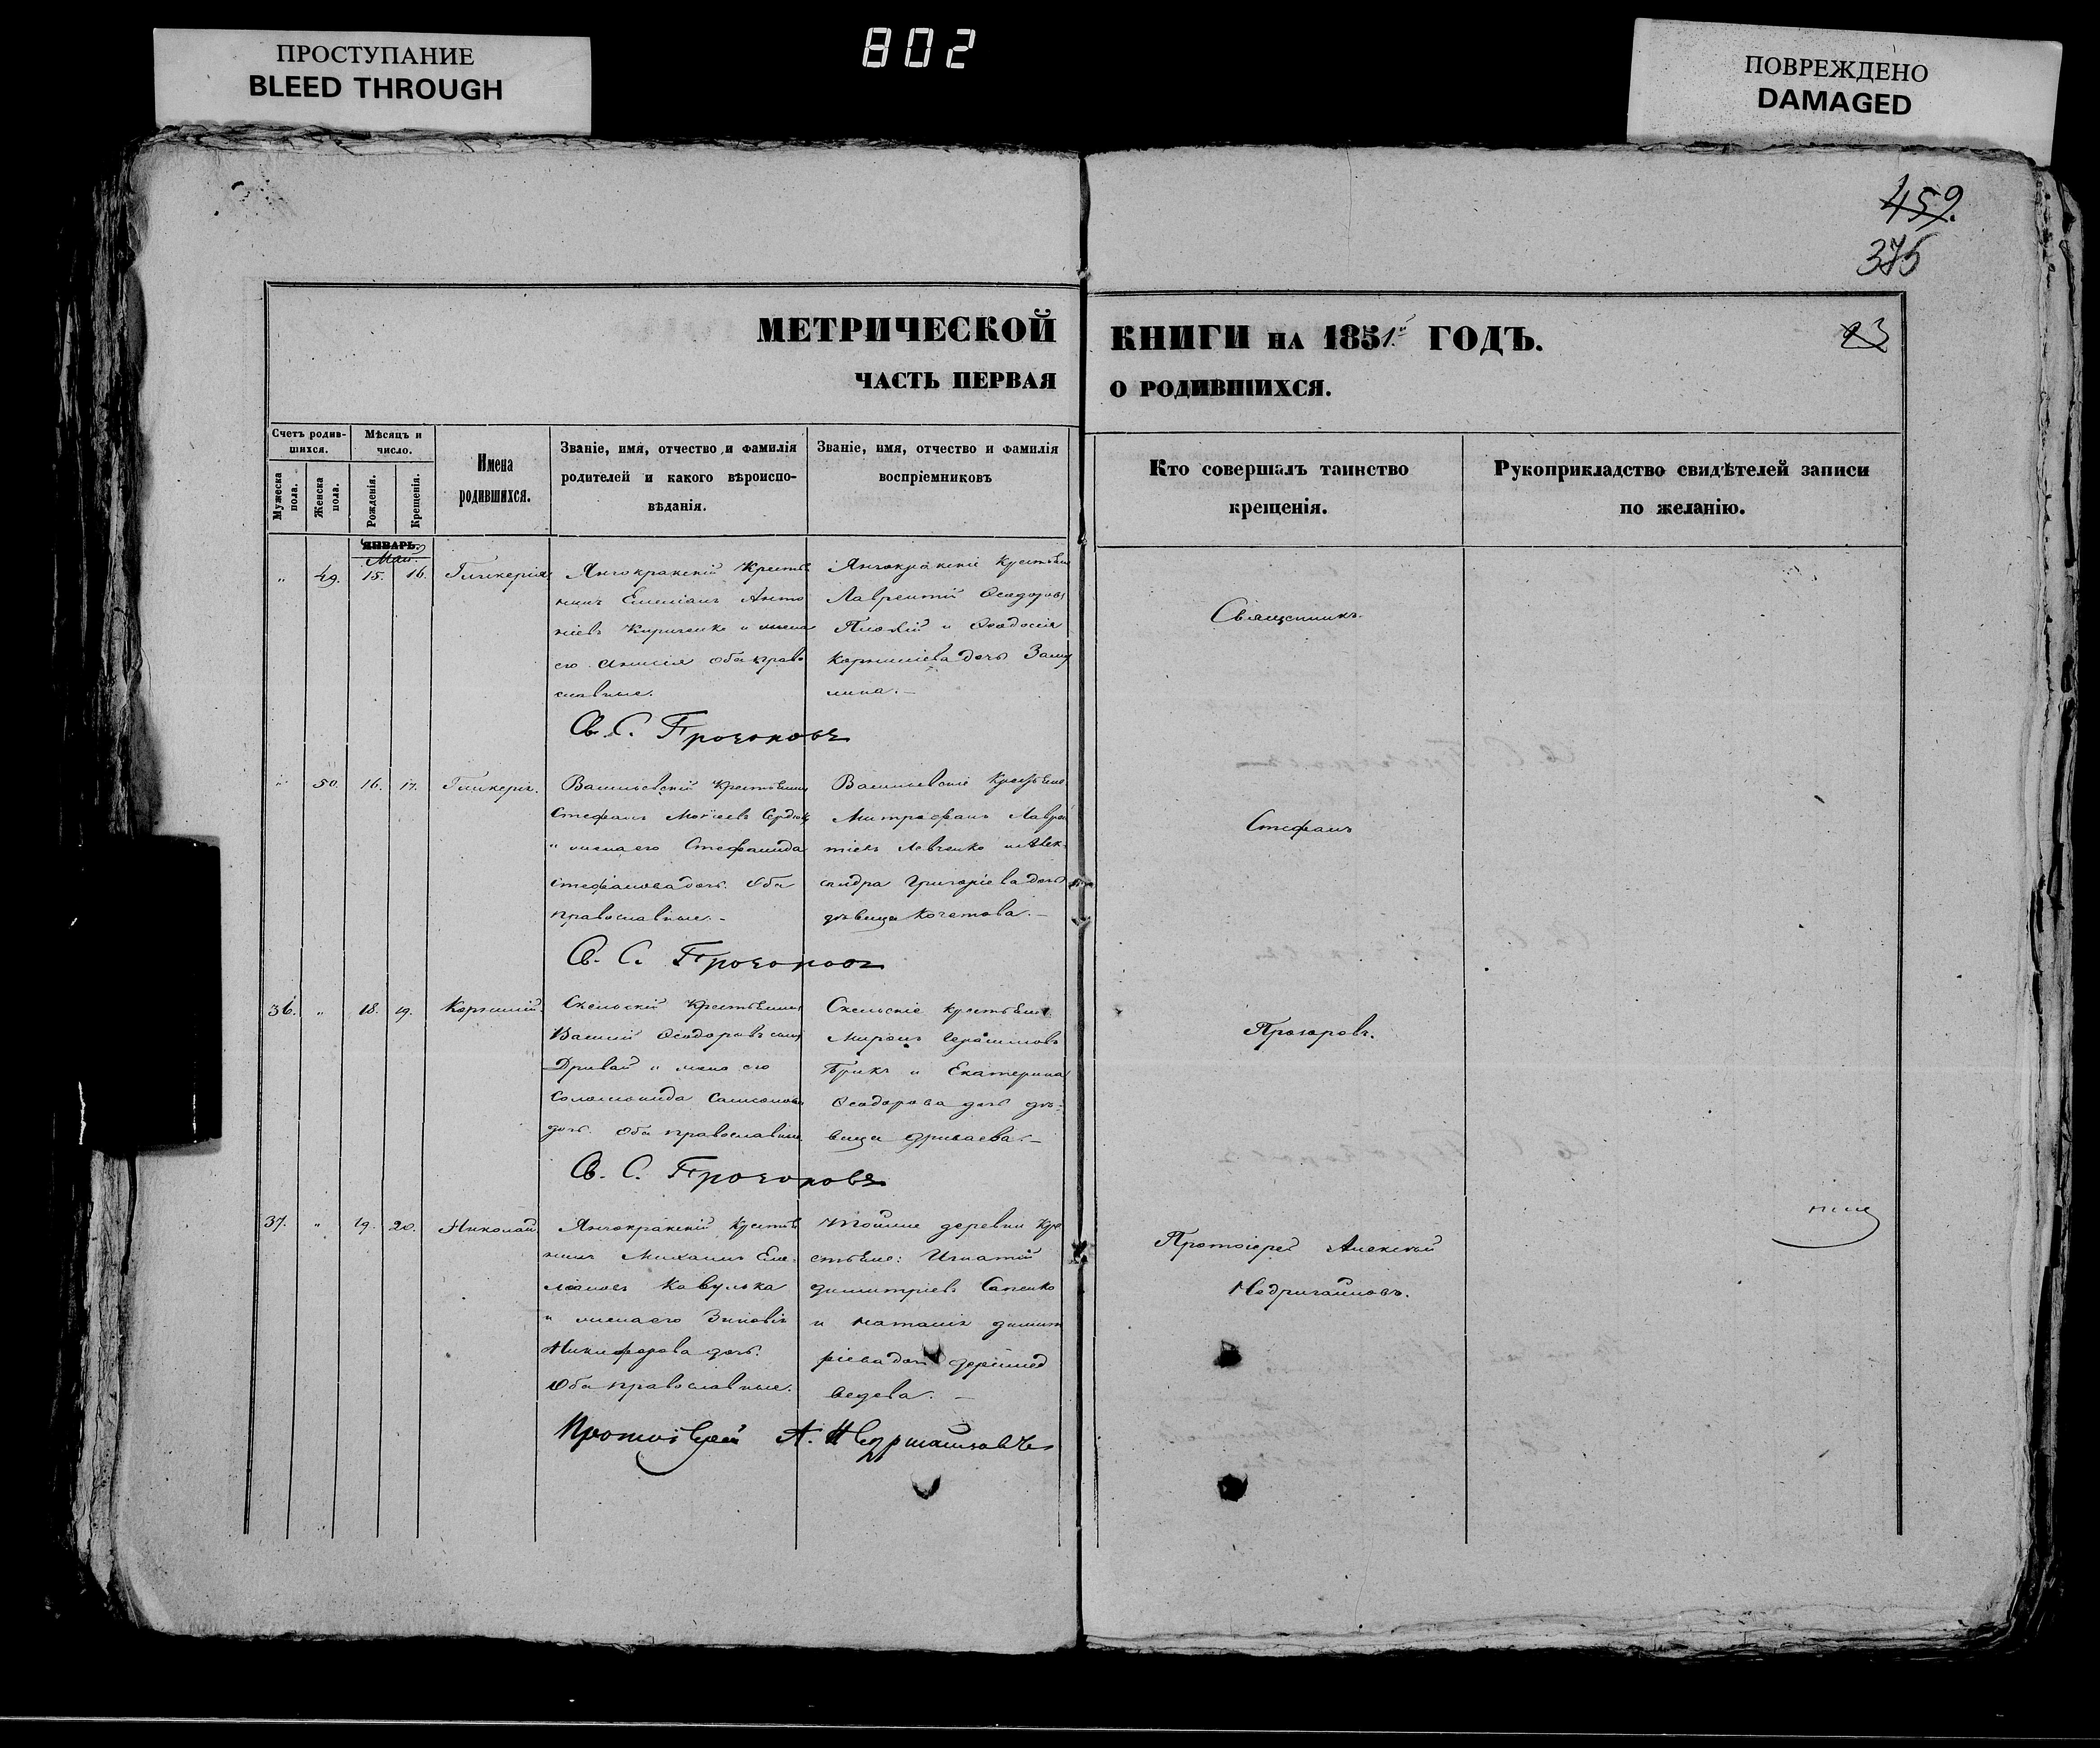 ПРОСТУПАНИЕ
BLEED THROUGH
802
ПОВРЕЖДЕНО
DAMAGED
459.
375
МЕТРИЧЕСКОЙ
ЧАСТЬ ПЕРВАЯ
КНИГИ НА 1851 ГОДЪ.
О РОДИВШИХСЯ.
23
Счетъ родив-
шихся.
Мужеска пола.
Женска пола.
Мѣсяцъ и
число.
Рожденія.
Крещенія.
Имена
родившихся.
Званіе, имя, отчество и фамилія
родителей и какого вѣроиспо-
вѣданія.
Званіе, имя, отчество и фамилія
воспріемниковъ
Кто совершалъ таинство
крещенія.
Рукоприкладство свидѣтелей записи
по желанію.
ЯНВАРЬ.
Май.
" 49. 15. 16. Гликерія
Янчокракскій Крестья
нинъ Емеліанъ Анто
ніевъ Кириченко и жена
его Анисія оба право
славные.
Янчокракскіе крестьяне
Лаврентій Ѳеодоровъ
и Ѳеодосія
Корниліева дочь
Св. С. Прозоровъ
Священникъ
" 50. 16. 17. Гликерія.
Васильевскій крестьянинъ
Стефанъ Моисеевъ
и жена его Стефанида
Стефанова дочь. Оба
православные. -
Васильевскіе крестьяне
Митрофанъ Лаврен
тіевъ Левченко и Алек
сандра Григоріева дочь
дѣвица Кочетова. -
Св. С. Прозоровъ
Стефанъ
36. " 18. 19. Корнилій.
Скельскій крестьянинъ
Василій Ѳеодоровъ сынъ
Дривай и жена его
Соломонида Самсонова
дочь. Оба православные
Скельскіе крестьяне
Миронъ Герасимовъ
и Екатерина
Ѳеодорова дочь дѣ-
вица Дриваева. -
Св. С. Прозоровъ
Прозоровъ.
37. " 19. 20. Николай
Янчокракскій крестья
нинъ Михаилъ Еме-
ліановъ Кавулька
и жена его Зиновія
Никифорова дочь.
Оба православные.
тойже деревни кре
стьяне: Игнатій
Димитріевъ Сапенко
и Наталія Димит
ріева дочь
Протоіерей Алексѣй
Протоіерей А.